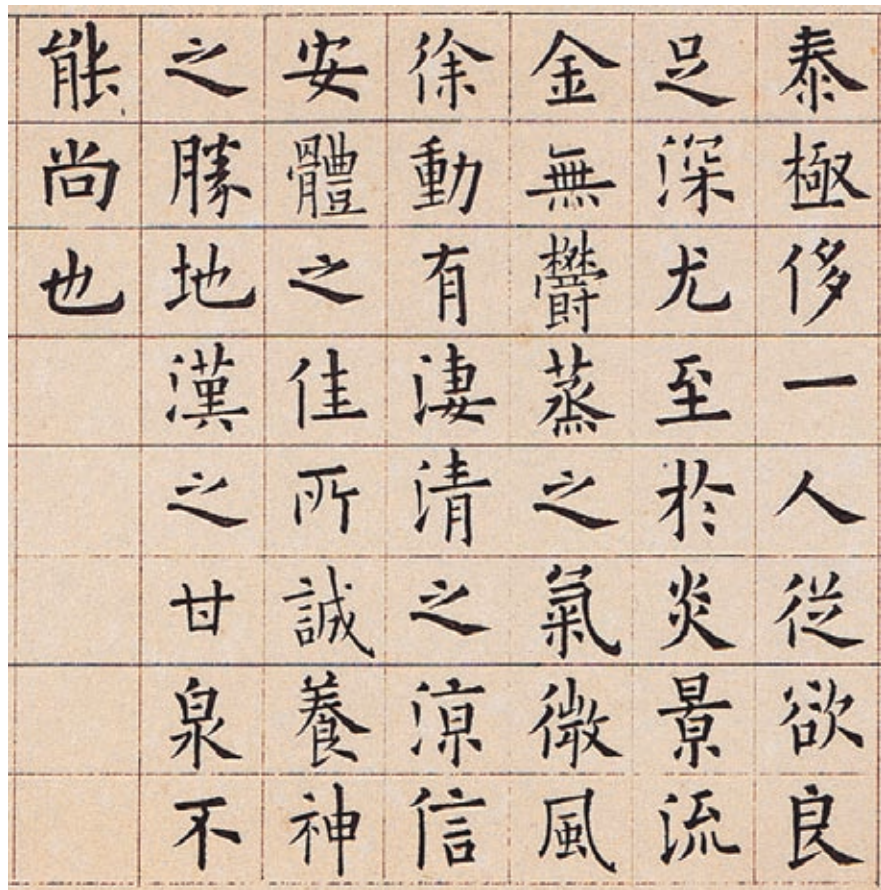 泰極侈一人從欲良
足深尤至於炎景流
金無鬱蒸之氣微風
徐動有淒清之涼信
安體之佳所誠養神
之勝地漢之甘泉不
能尚也